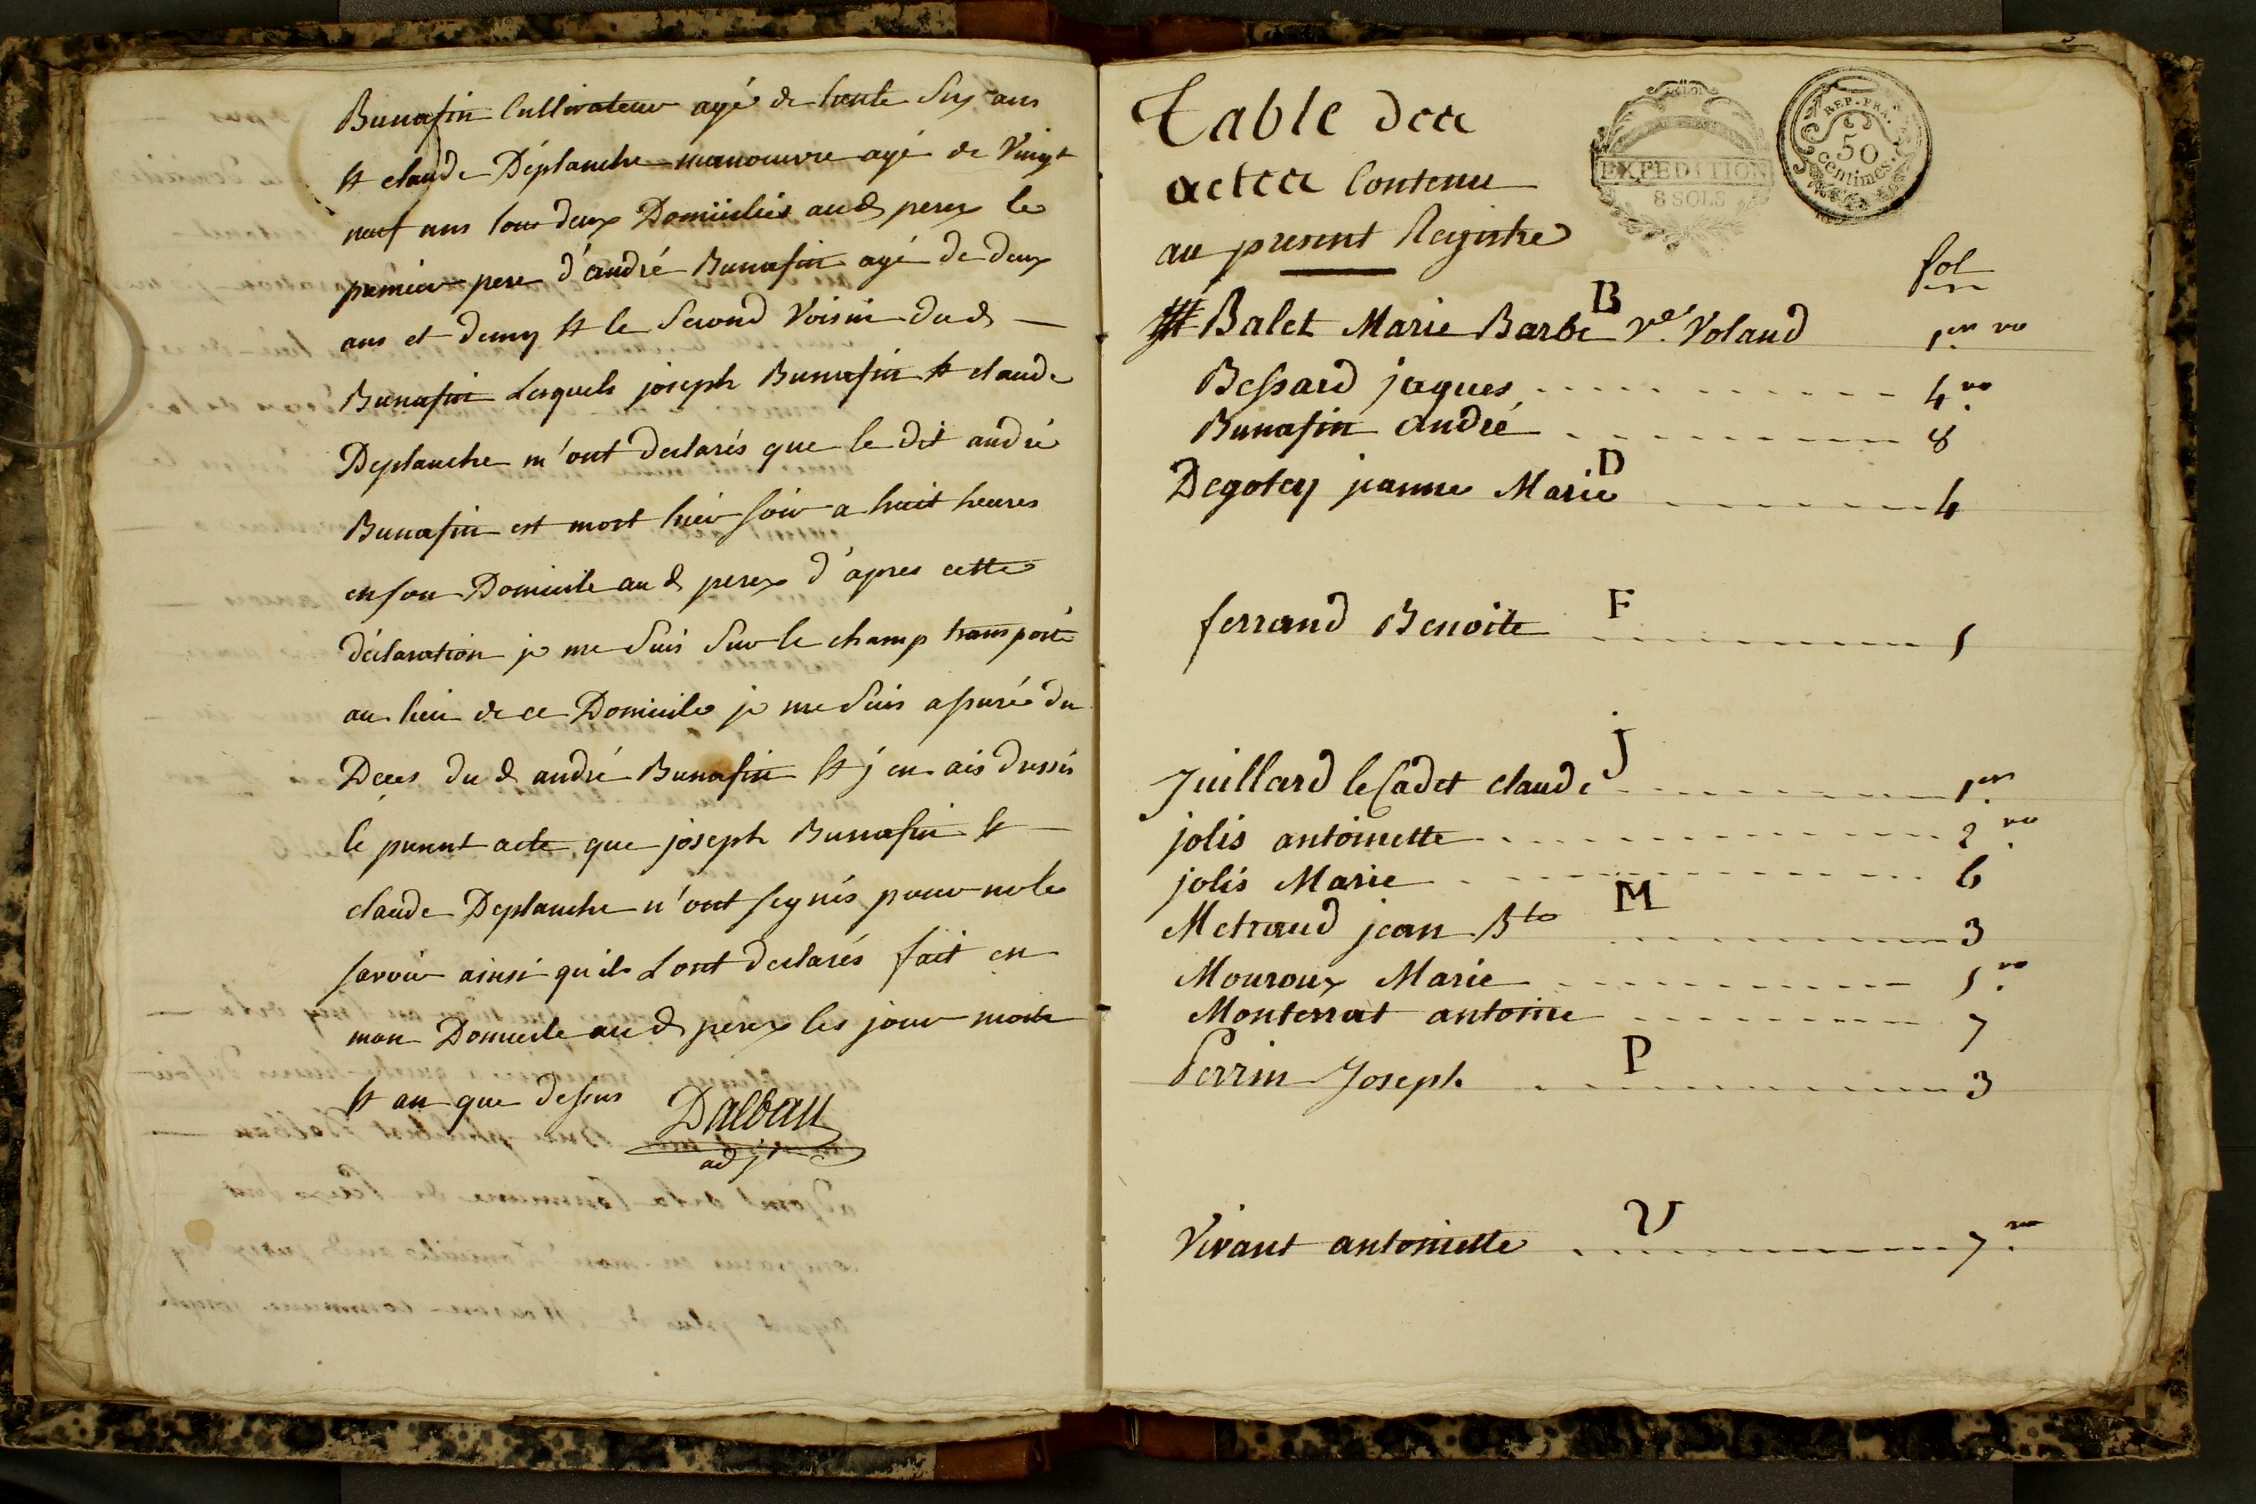 Bunafin Cultivateur agé de trente Six ans
et claude Déplanche manoeuvre agé de Vingt
neuf ans tous deux Domiciliés aud perex le
premier pere d'andré Bunafin agé de deux
ans et demy et le Second Voisin dud
Bunafin Lesquels joseph Bunafin et claude
Deplanche m'ont declarés que le dit andré
Bunafin est mort hier soir a huit heures
en son Domicile aud perex d'apres cette
déclaration je me Suis Sur le champ transporté
au lieu de ce Domicile je me Suis assuré du
Deces dud andré Bunafin et j'en ais dressés
le present acte que joseph Bunafin et
claude Deplanche n'ont segnés pour ne le
savoir ainsi qu'ils Lont declarés fait en
mon Domicile aud perex les jour mois
et an que dessus Dalban
adjt
Table des
actes Contenu
au present Registre
EXPEDITION
8 SOLS
REP. FRA.
50
centimes.
fol
B
Balet Marie Barbe Ve. Voland 1er vo
Bessard jaques 4 vo
Bunafin andré 8
D
Degotey jeanne Marie 4
F
ferrand Benoite 5
J
Juillard le Cadet claude 1er
jolis antoinette 2 vo
jolis Marie 6
M
Metraud jean Bte 3
Mouroux Marie 5 vo
Monterrat antoine 7
P
Perrin Joseph 3
V
Vivant antoinette 7 vo